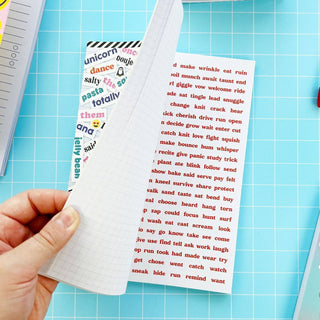 unicorn
once
bouje
dance
the
salty
SO
pasta
totally
them
ana
said
jelly bean
d make wrinkle eat ruin
soil munch await taunt end
l giggle vow welcome ride
ade eat tingle lead snuggle
change knit crack bear
kick cherish drive run open
o decide grow wait enter cut
catch knit love fight squish
make bounce hum whisper
relite give panic study trick
plant ate blink follow send
show bake said serve pay felt
kneel survive share protect
walk sand taste sat bend buy
eat choose beard hang torn
rap could focus hunt surf
wash eat cast scream look
say go know take see come
give use find tell ask work laugh
op run took had made wear try
get chose went catch watch
sneak hide run remind want